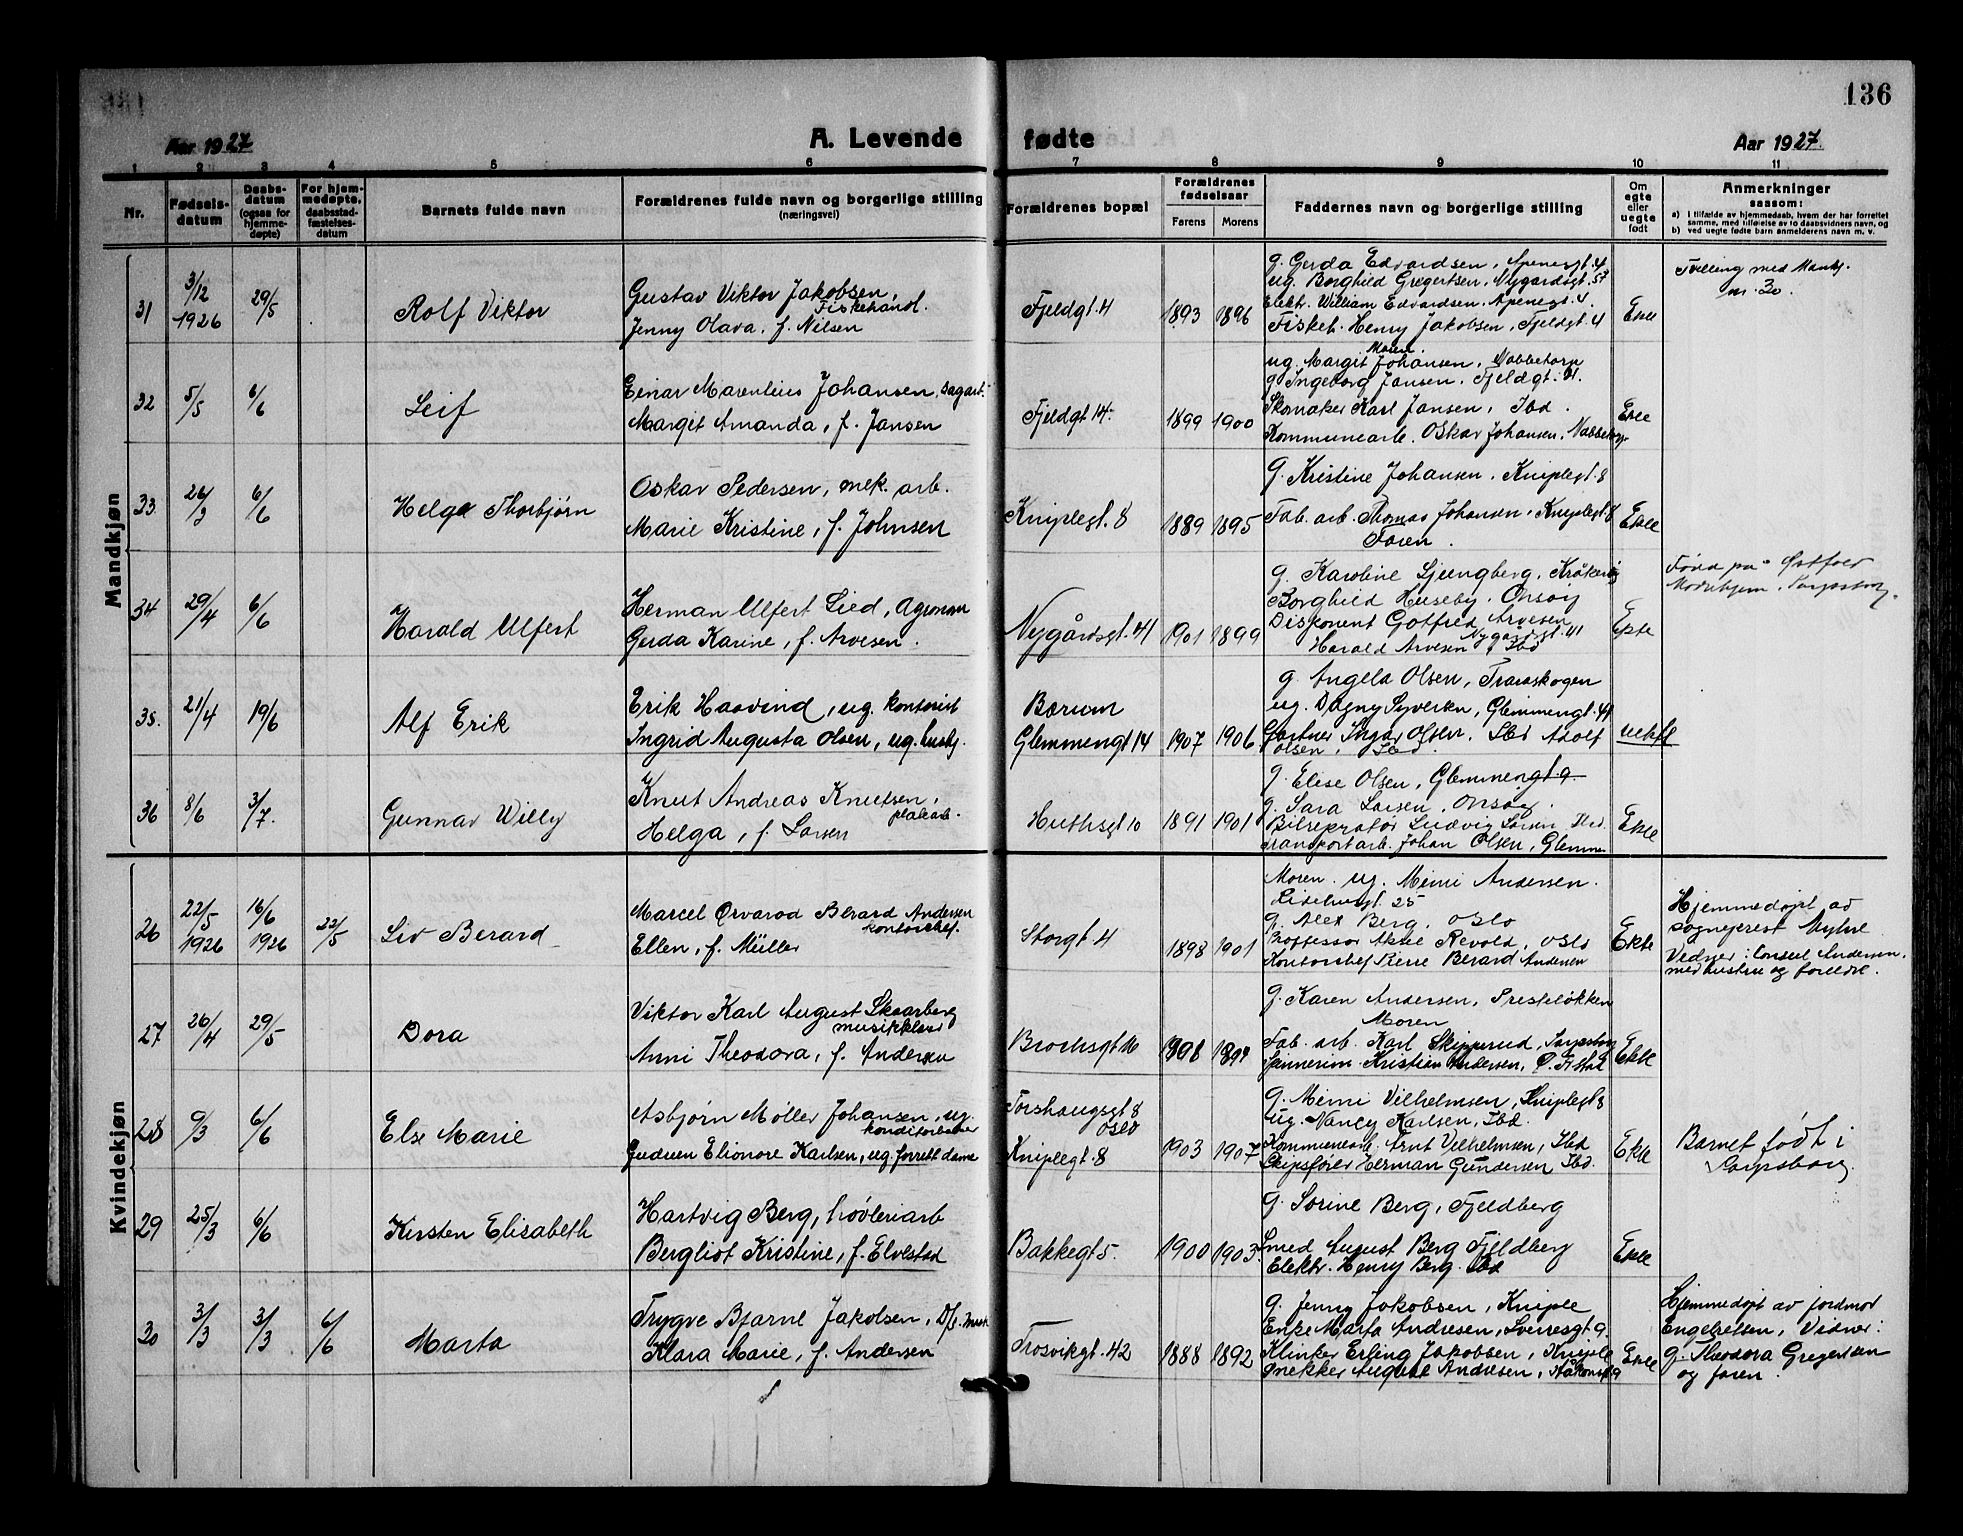 136
Aar 1927
A. Levende fødte
Aar 1927
1 2 3 4 5 6 7 8 9 10 11
Nr.
Fødsels-
datum
Daabs-
datum
(ogsaa for
hjemme-
døpte)
For hjem-
medøpte,
daabsstad-
fæstelses-
datum
Barnets fulde navn
Forældrenes fulde navn og borgerlige stilling
(næringsvei)
Forældrenes bopæl
Forældrenes
fødselsaar
Førens
Morens
Faddernes navn og borgerlige stilling
Om
egte
eller
uegte
født
Anmerkninger
saasom:
a) i tilfælde av hjemmedaab, hvem der har forrettet
samme, med tilføielse av to daabsvidners navn, og
b) ved uegte fødte barn anmelderens navn m. v.
Mandkjøn
31
3/12
1926
29/5
Rolf Viktor
Gustav Viktor Jakobsen,
Fiskehandl.
Jenny Olava, f. Nilsen
Fjeldgt. 4
1893
1896
g. Gerda Edvardsen, Apenesgt. 4
ug. Borghild Gregertsen, Nygaardsgt. 53
Elektr. William Edvardsen, Apenesgt. 4.
Fiskeh. Henry Jakobsen, Fjeldgt. 4
Ekte
Tvilling med Mantkj.
nr. 30.
32
5/5
6/6
Leif
Einar Marenlius Johansen, sagarb.
Margit Amanda, f. Jansen
Fjeldgt 14
1899
1900
Moren.
ug. Margit Johansen, Nabbetorp
g. Ingeborg Jansen, Fjeldgt. 21.
Skomaker Karl Jansen, Ibd.
Kommunearb. Oskar Johansen, Nabbetorp
Ekte
33
26/3
6/6
Helge Thorbjørn
Oskar Pedersen, mek. arb.
Marie Kristine, f. Johnsen
Kniplegt. 8
1889
1895
g. Kristine Johansen, Kniplegt. 8
Fab. arb. Thomas Johansen, Kniplegt. 8
Faren.
Ekte
34
29/4
6/6
Harald Ulfert
Herman Ulfert Lied, Agronom
Gerda Karine, f. Arvesen.
Nygårdsgt. 41
1901
1899
g. Karoline Ljungberg, Kråkerøy
Borghild Huseby, Onsøy
Disponent Gotfred Arvesen
Nygårdsgt. 41
Harald Arvesen, Ibd
Ekte
Født på Østfold
Mødrehjem, Sarpsborg.
35.
21/4
19/6
Alf Erik
Erik Haavind, ug. kontorist
Ingrid Augusta Olsen, ug. husbj.
Bærum
Glemmengt 14
1907
1906
g. Angela Olsen, Traraskogen
ug. Dagny Syversen, Glemmengt. 41
Gartner Ingar Olsen, Ibd Adolf
Olsen, Ibd.
uekte
36
8/6
3/7.
Gunnar Willy
Knut Andreas Knutsen,
platearb.
Helga, f. Larsen
Huthsgt 10
1891
1901
g. Elise Olsen, Glemmengt. 9
g. Sara Larsen, Onsøy.
Bilreparatør Ludvig Larsen, Ibd.
Transportarb. Johan Olsen, Glemmen
Ekte
Kvindekjøn
26
22/5
1926
16/6
1926
22/5
Liv Berard
Marcel Ørvarod Berard Andersen
kontorchef.
Ellen, f. Müller
Storgt 4
1898
1901
Moren. ug. Mimi Andersen.
25
g. Alex Berg, Oslo
Professor Aksel Revold, Oslo
Kontorchef Pierre Berard Andersen
Ekte
Hjemmedøpt av
sogneprest Myhre
Vidner: Consul Andersen,
med hustru og foreldre.
27
26/4
29/5
Dora
Viktor Karl August Skaarberg
musikklærer
Anni Theodora, f. Andersen
Brochsgt 16
1898
1894
g. Karen Andersen, Presteløkken
Moren
Fab. arb. Karl Skipperud, Sarpsborg
Kristian Andersen, Ø. Fr.stad
Ekte
28
9/3
6/6
Else Marie
Asbjørn Møller Johansen, ug.
konditorbaker
Gudrun Elionore Karlsen, ug. forrett. dame
Torshaugsgt 8
Oslo
Kniplegt. 8
1903
1907
g. Mimi Vilhelmsen, Kniplegt 8
ug. Nancy Karlsen, Ibd.
Kommunearb. Arnt Vilhelmsen, Ibd
Skipsfører Herman Gundersen Ibd.
Ekte
Barnet født i
Sarpsborg.
29
25/3
6/6
Kirsten Elisabeth
Hartvig Berg, høvleriarb
Bergliot Kristine, f. Elvestad
Bakkegt 5.
1900
1903.
g. Sorine Berg, Fjeldberg
Smed August Berg Fjeldberg
Elektr. Henry Berg. Ibd
Ekte
30
3/3
3/3
6/6
Marta
Trygve Bjarne Jakobsen, D/s. mask
Klara Marie, f. Andersen
Trosvikgt. 42
1888
1892
g. Jenny Jakobsen, Kniple
Enke Marta Andresen, Sverresgt 9.
Klinker Erling Jakobsen, Kniple
Snekker August Andresen, Håkonsgt 9
Ekte
Hjemmedøpt av jordmor
Engebretsen, Vidner:
g. Theodora Gregersen
og faren.